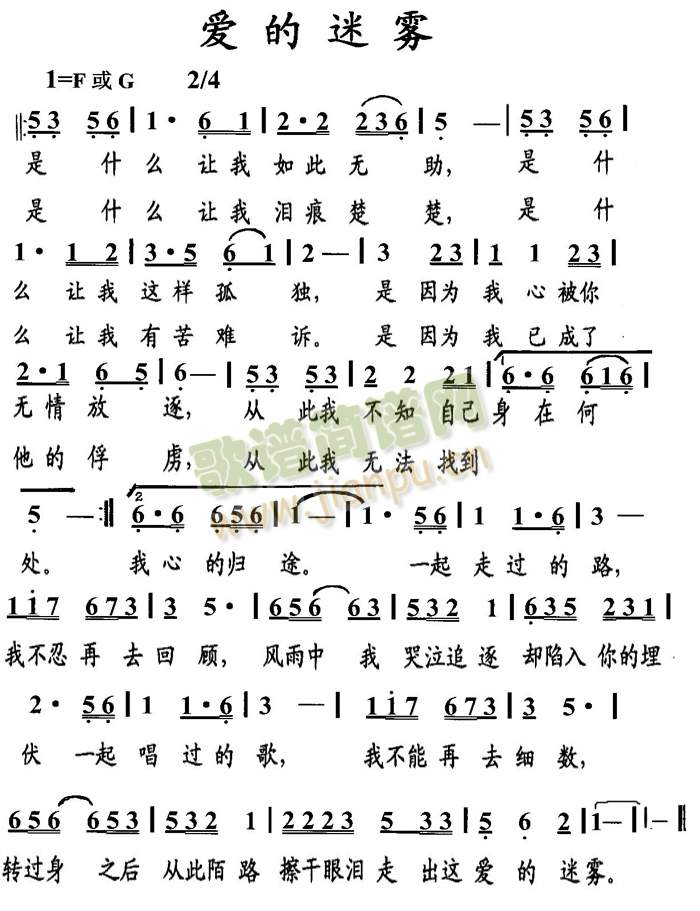 爱的迷雾
1=F 或 G 2/4
‖:5 3 5 6 | 1· 6 1 | 2·2 2 3 6 | 5 — | 5 3 5 6 |
是什么让我如此无助, 是什
是什么让我泪痕楚楚, 是什
1· 1 2 | 3·5 6 1 | 2 — | 3 2 3 | 1 1 2 3 |
么让我这样孤独, 是因为我心被你
么让我有苦难诉。 是因为我已成了
2·1 6 5 | 6 — | 5 3 5 3 | 2 2 2 1 | 6·6 6 1 6 |
无情放逐, 从此我不知自己身在何
他的俘虏, 从此我无法找到
歌谱简谱网
www.jianpu.cn
5 — :‖ 2 6·6 6 5 6 | 1 — | 1· 5 6 | 1 1·6 | 3 — |
处。 我心的归途。 一起走过的路,
1 1 7 6 7 3 | 3 5· | 6 5 6 6 3 | 5 3 2 1 | 6 3 5 2 3 1 |
我不忍再去回顾, 风雨中我哭泣追逐却陷入你的埋
2· 5 6 | 1 1·6 | 3 — | 1 1 7 6 7 3 | 3 5· |
伏 一起唱过的歌, 我不能再去细数,
6 5 6 6 5 3 | 5 3 2 1 | 2 2 2 3 5 3 3 | 5 6 2 | 1 — | 1 — ‖
转过身 之后 从此陌路 擦干眼泪走出这爱的迷雾。